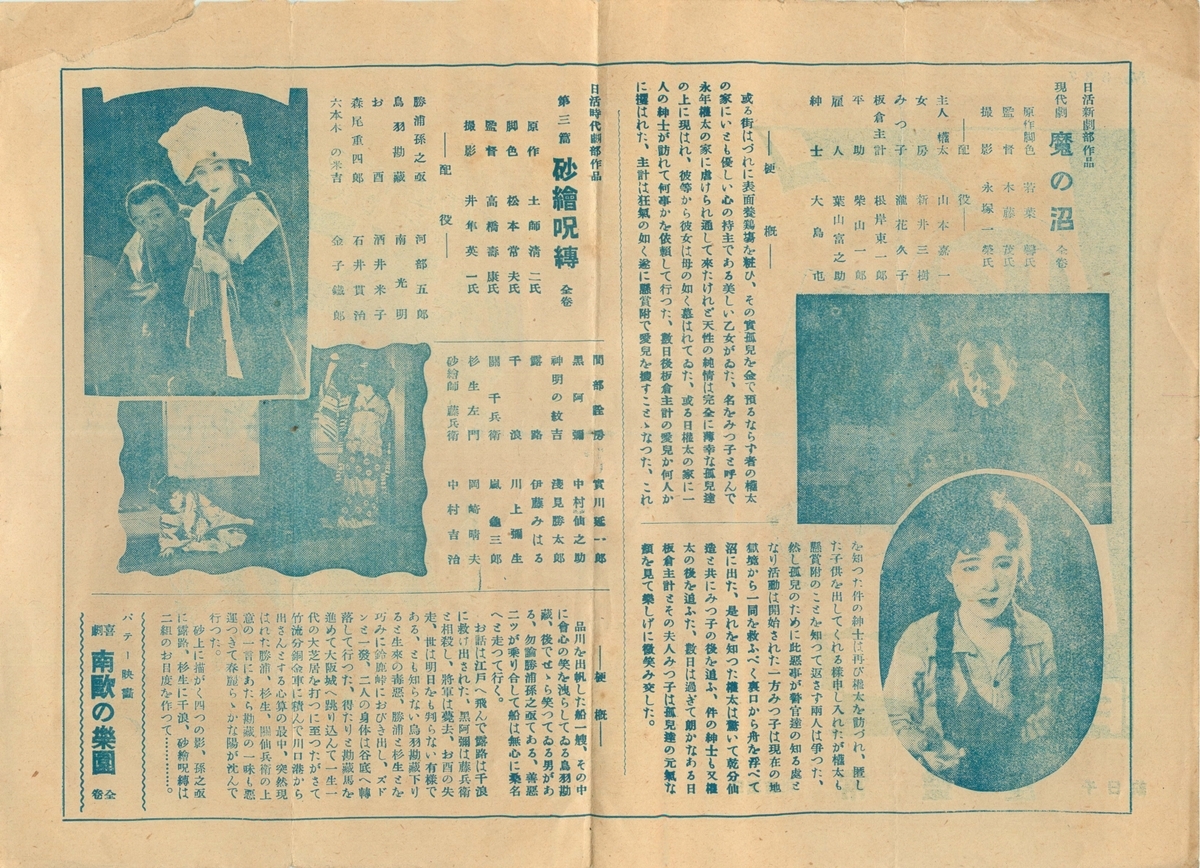 日活新劇部作品
現代劇 魔の沼 全卷
原作脚色 若葉 馨氏
監督 木藤 茂氏
撮影 永塚一榮氏
――配 役――
主人權太 山本嘉一
女房 新井三樹
みつ子 瀧花久子
板倉主計 根岸東一郎
平助 柴山一郎
雇人 葉山富之助
紳士 大島屯
――梗 概――
或る街はづれに表面養鷄場を粧ひ、その實孤兒を金で預るならず者の權太
の家にいとも優しい心の持主である美しい乙女がゐた、名をみつ子と呼んで
永年權太の家に虐けられ通して來たけれど天性の純情は完全に薄幸な孤兒達
の上に現はれ、彼等から彼女は母の如く慕はれてゐた、或る日權太の家に一
人の紳士が訪れて何事かを依頼して行つた、數日後板倉主計の愛兒か何人か
に攫はれた、主計は狂氣の如く遂に懸賞附で愛兒を捜すことゝなつた、これ
を知つた件の紳士は再び權太を訪づれ、匿し
た子供を出してくれる樣申し入れたが權太も
懸賞附のことを知つて返さす兩人は爭つた、
然し孤兒のために此惡事が警官達の知る處と
なり活動は開始された一方みつ子は現在の地
獄境から一同を救ふべく裏口から舟を浮べて
沼に出た、是れを知つた權太は驚いて乾分仙
造と共にみつ子の後を追ふ、件の紳士も又權
太の後を追ふた、數日は過ぎて朗かなある日
板倉主計とその夫人みつ子は孤兒達の元氣な
顏を見て樂しげに微笑み交した。
日活時代劇部作品
第三篇 砂繪呪縛 全卷
原作 土師清二氏
脚色 松本常夫氏
監督 高橋壽康氏
撮影 井隼英一氏
――配 役――
勝浦孫之亟 河部五郎
鳥羽勘藏 南光明
お酉 酒井米子
森尾重四郎 石井貫治
六本木の米吉 金子鐵郎
間部詮房 實川延一郎
黒阿彌 中村仙之助
神明の紋吉 淺見勝太郎
露路 伊藤みはる
千浪 川上彌生
關千兵衛 嵐龜三郎
杉生左門 岡崎晴夫
砂繪師藤兵衛 中村吉治
――梗 概――
品川を出帆した船一艘、その中
に會心の笑を洩らしてゐる鳥羽勘
藏、後でせゝら笑つてゐる男があ
る、勿論勝浦孫之亟である、善惡
二ツが乘り合して船は無心に桑名
へと走つて行く。
お話は江戸へ飛んで露路は千浪
に救け出された、黒阿彌は藤兵衛
と相殺し、將軍は薨去、お酉の失
走、世は明日をも判らない有樣で
ある、とも知らない鳥羽勘藏下り
ると生來の毒惡、勝浦と杉生とを
巧みに鈴鹿峠におびき出し、ズド
ンと一發、二人の身体は谷底へ轉
落して行つた、得たりと勘藏馬を
進めて大阪城へ跳り込んて一生一
代の大芝居を打つに至つたがさて
竹流分銅金車に積んで川口港から
出さんとする心算の最中、突然現
はれた勝浦、杉生、關仙兵衛の上
意の一言にあたら勘藏の一味も惡
運つきて春麗らゝかな陽が沈んで
行つた。
砂上に描がく四つの影、孫之亟
に露路、杉生に千浪、砂繪呪縛は
二組のお目度を作つて………。
パテー映畫
喜劇 南歐の樂園 全卷